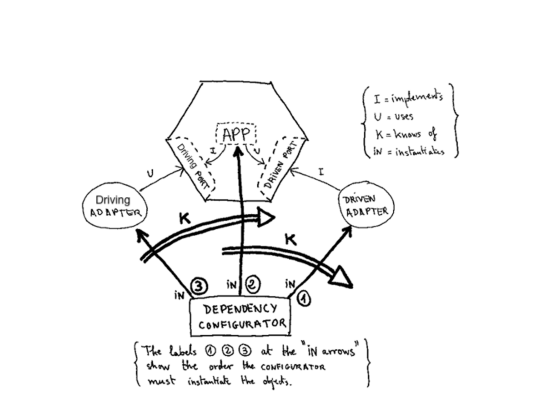 I = implements
U = uses
K = knows of
iN = instantiates
APP
I
U
Driving PORT
DRIVEN PORT
U
I
Driving ADAPTER
DRIVEN ADAPTER
K
K
iN 3
iN 2
iN 1
DEPENDENCY
CONFIGURATOR
The labels 1 2 3 at the "iN arrows"
show the order the CONFIGURATOR
must instantiate the objects.